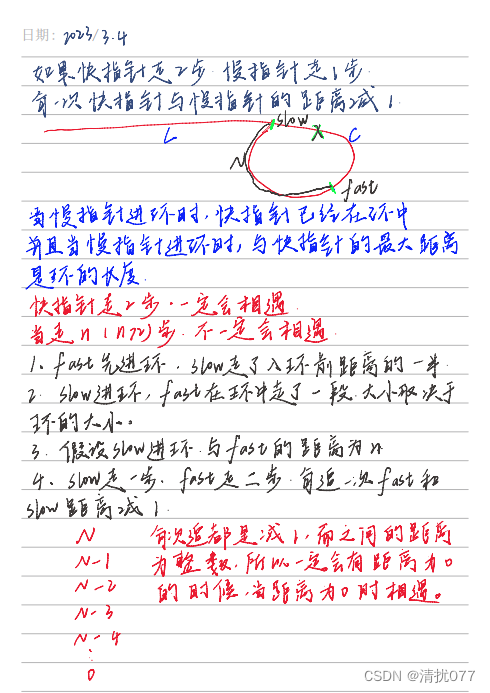 日期: 2023/3.4
如果快指针走2步 慢指针走1步
每一次快指针与慢指针的距离减1.
slow
L
X
C
N
fast
当慢指针进环时,快指针已经在环中
并且当慢指针进环时,与快指针的最大距离
是环的长度.
快指针走2步.一定会相遇
当走n(n>2)步.不一定会相遇
1. fast先进环,slow走了入环前距离的一半
2. slow进环,fast在环中走了一段.大小取决于
环的大小。
3. 假设slow进环与fast的距离为n
4. slow走一步.fast走二步 每追一次fast和
slow距离减1.
N 每次追都是减1.而之间的距离
N-1 为整数.所以一定会有距离为0
N-2 的时候,当距离为0时相遇。
N-3
N-4
⋮
0
CSDN @清扰077